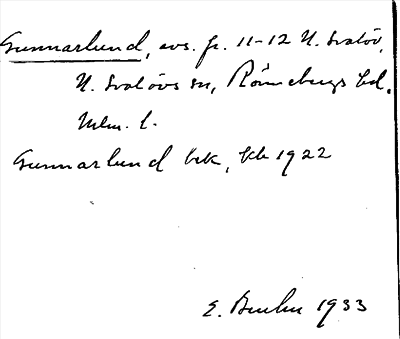 Gunnarlund, avs. fr. 11-12 N. Svalöv,
N. Svalövs sn, Rönnebergs hd.
Mlm. l.
Gunnarlund bek, kb 1922
E. 1933